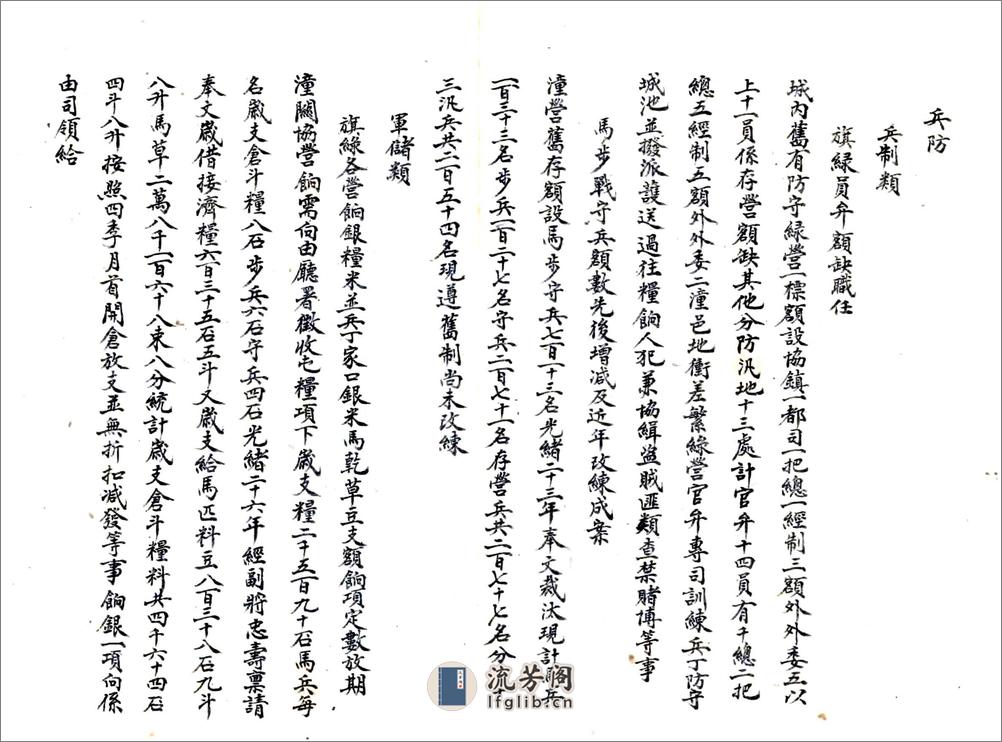 兵防
兵制類
旗綠員弁額缺職任
城內舊有防守綠營一標額設協鎮一都司一把總一經制三額外外委五以
上十一員係存營額缺其他分防汛地十三處計官弁十四員有千總二把
總五經制五額外外委二潼邑地衝差繁綠營官弁專司訓練兵丁防守
城池並撥派護送過往糧餉人犯兼協緝盜賊匪類查禁賭博等事
馬步戰守兵額數先後增減及近年改練成案
潼營舊存額設馬步守兵七百一十三名光緒二十三年奉文裁汰現計馬兵
一百三十三名步兵一百二十七名守兵二百七十一名存營兵共二百七十七名分十
三汛兵共二百五十四名現遵舊制尚未改練
軍儲類
旗綠各營餉銀糧米並兵丁家口銀米馬乾草豆支額餉項定數放期
潼關協營餉需向由廳署徵收屯糧項下歲支糧二千五百九十石馬兵每
名歲支倉斗糧八石步兵六石守兵四石光緒二十六年經副將忠壽稟請
奉文歲借接濟糧六百三十五石五斗又歲支給馬匹料豆八百三十八石九斗
八升馬草二萬八千一百六十八束八分統計歲支倉斗糧料共四千六十四石
四斗八升按照四季月首開倉放支並無折扣減發等事餉銀一項向係
由司領給
流芳閣
lfglib.cn